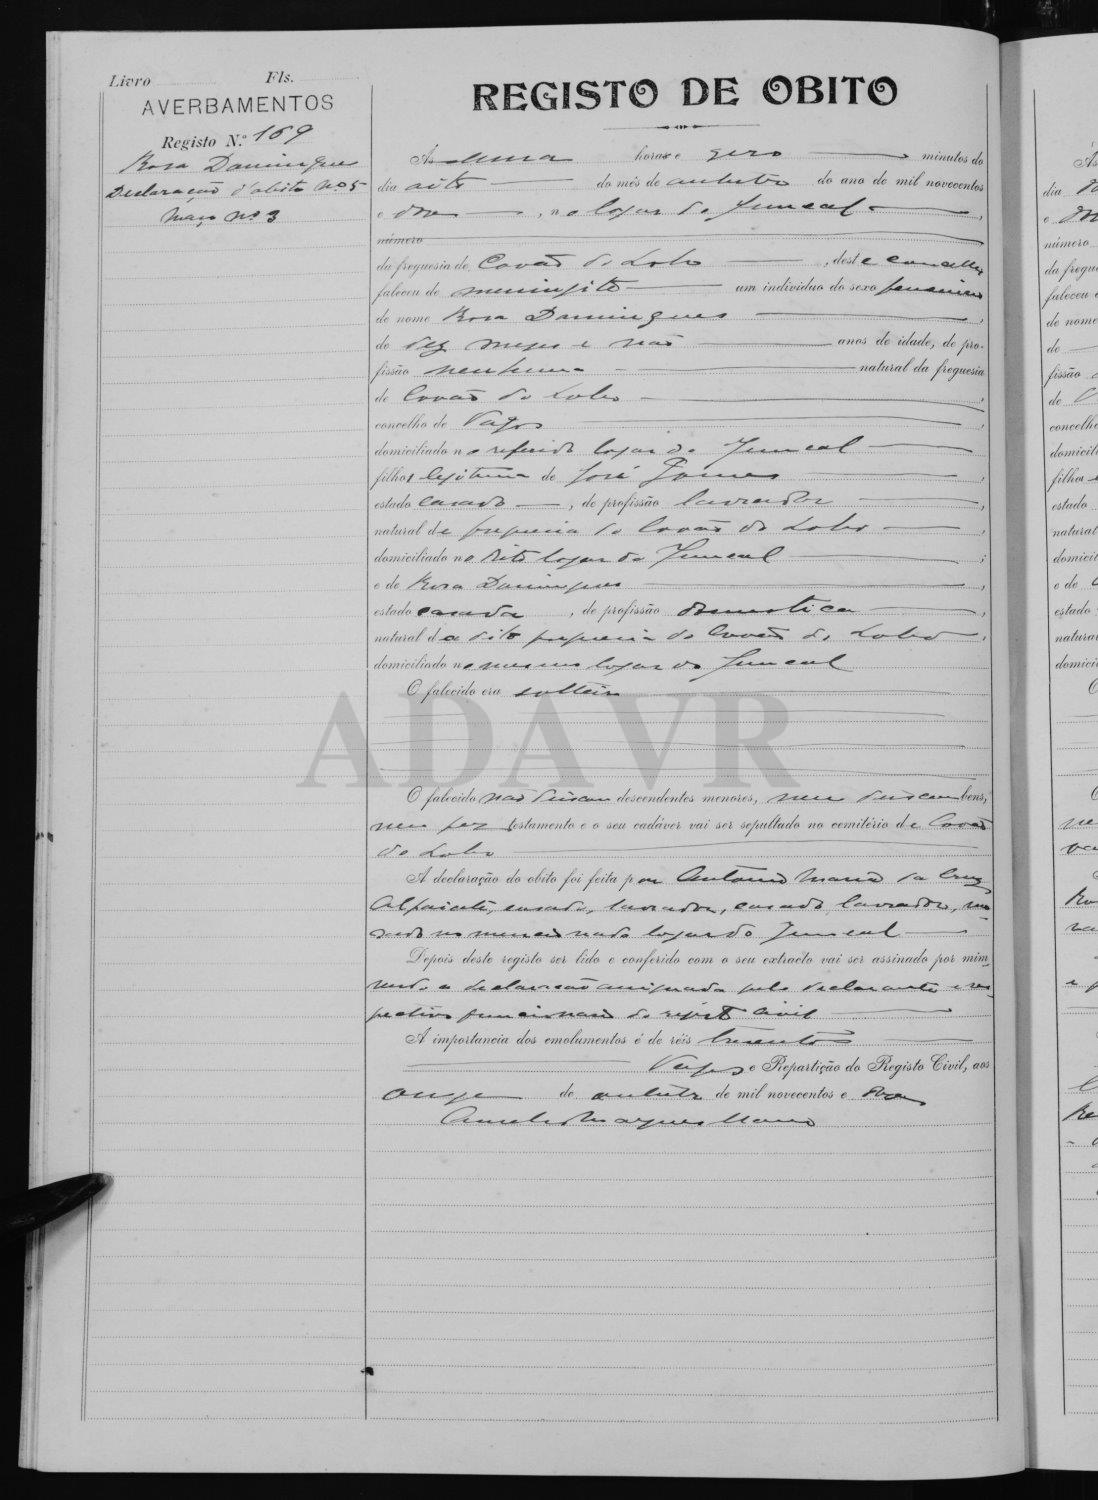 Livro Fls.
AVERBAMENTOS
Registo N.º 169
Rosa Domingues
Declaração d'obito nº 5
Maço nº 3
REGISTO DE OBITO
Ás uma horas e zero minutos do
dia oito do mês de outubro do ano de mil novecentos
e doze, no logar do Juncal,
número
da freguesia de Covão do Lobo, deste concelho
faleceu de meningite um individuo do sexo femenino
de nome Rosa Domingues,
de dez meses e não anos de idade, de pro-
fissão nenhuma natural da freguesia
de Covão do Lobo,
concelho de Vagos,
domiciliado no referido logar do Juncal
filha legitima de José Gomes,
estado casado, de profissão lavrador,
natural de freguesia do Covão do Lobo,
domiciliado no dito logar do Juncal;
e de Rosa Domingues,
estado casada, de profissão domestica,
natural da dita freguesia do Covão do Lobo,
domiciliado no mesmo logar do Juncal
O falecido era solteira
ADAVR
O falecido não deixou descendentes menores, nem deixou bens,
nem fez testamento e o seu cadáver vai ser sepultado no cemitério de Covão
do Lobo
A declaração do obito foi feita por António Maria da Cruz
Alfaiate, casado, lavrador, casado, lavrador, mo-
rado no mencionado logar do Juncal
Depois deste registo ser lido e conferido com o seu extracto vai ser assinado por mim,
sendo a declaração assignada pelo declarante e res-
pectivo funcionario do registo civil
A importancia dos emolumentos é de réis trezentos
Vagos e Repartição do Registo Civil, aos
onze de outubro de mil novecentos e doze
Marques